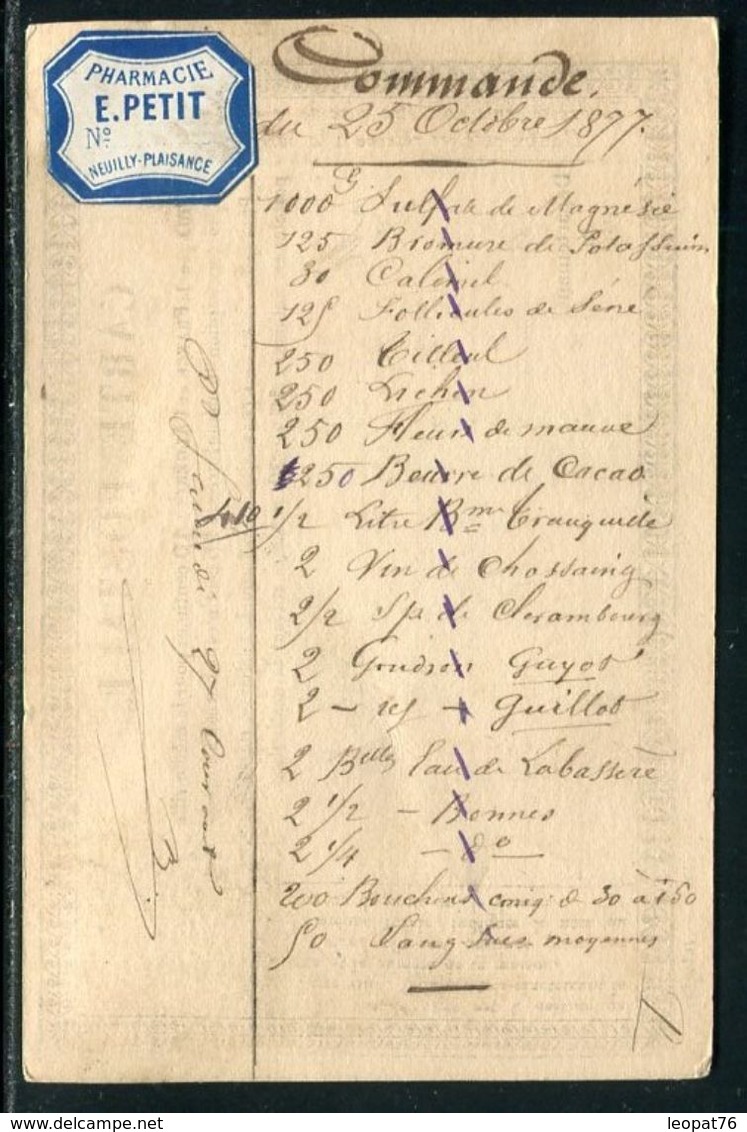 PHARMACIE
E. PETIT
Nº
NEUILLY-PLAISANCE
Commande.
du 25 Octobre 1877.
1000 G Sulfate de Magnésie
125 Bromure de Potassium
30 Calomel
125 Follicules de Séné
250 Tilleul
250 Lichen
250 Fleurs de mauve
250 Beurre de Cacao
1/2 Litre Bme tranquille
2 Vin de Chassaing
2/2 Sp de Clérambourg
2 Goudron Guyot
2 - id - Guillot
2 Blles Eau de Labassère
2 1/2 - Bonnes
2 1/4 - dº
200 Bouchons coniq d 30 à 150
50 Sangsues moyennes
410
27 Courant
CARTE POSTALE
leopat76